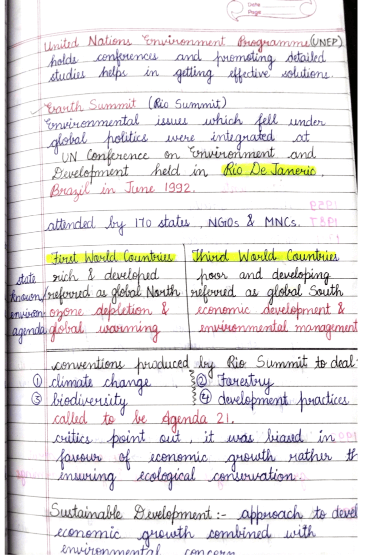 Date
Page
United Nations Environment Programme (UNEP)
holds conferences and promoting detailed
studies helps in getting effective solutions.
Earth Summit (Rio Summit)
Environmental issues which fell under
global politics were integrated at
UN Conference on Environment and
Development held in Rio De Janeric,
Brazil in June 1992.
attended by 170 states, NGIOs & MNCs.
First World Countries Third World Countries
rich & developed poor and developing
state known/ referred as global North referred as global South
environ ozone depletion & economic development &
agenda global warming environmental management
conventions produced by Rio Summit to deal
① climate change ② Farestry
③ biodiversity ④ development practices
called to be Agenda 21.
critics point out, it was biased in
favour of economic growth rather th
insuring ecological conservation
Sustainable Development :- approach to devel
economic growth combined with
environmental concern